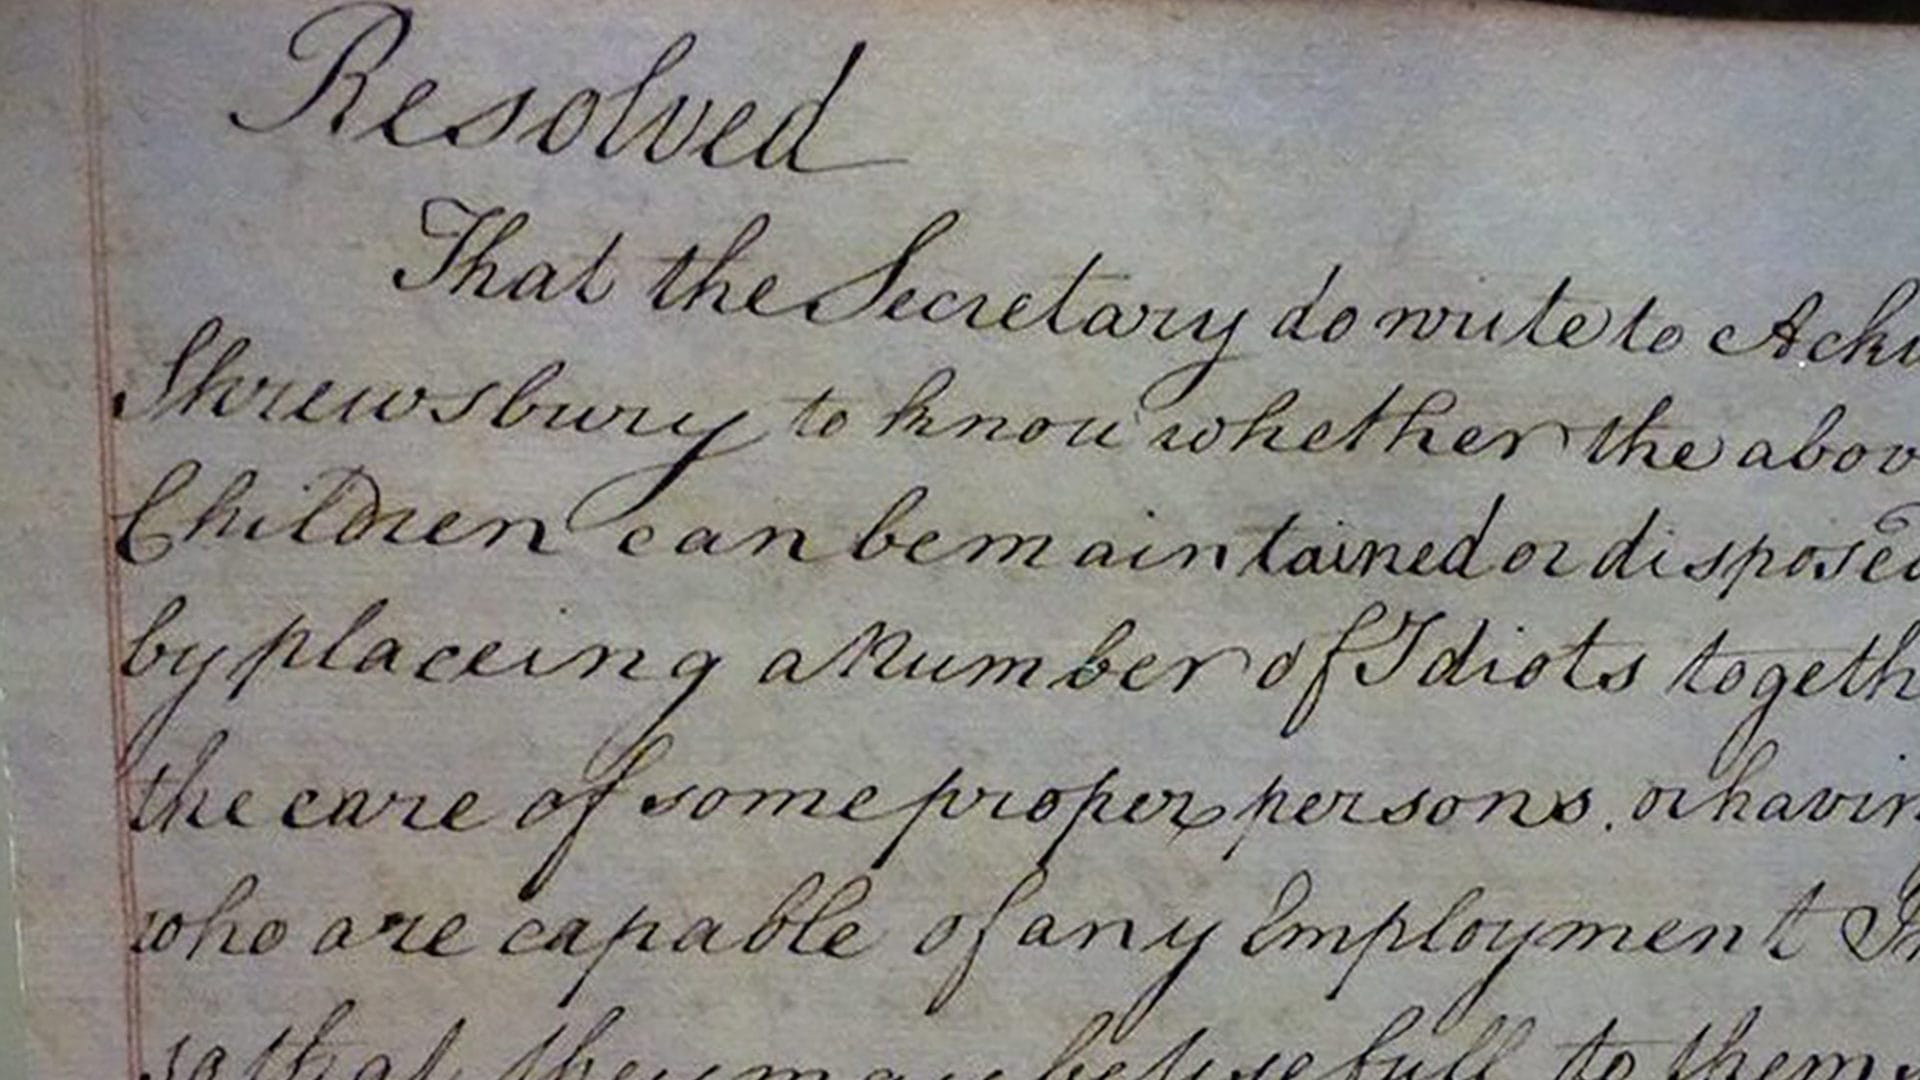 Resolved
That the Secretary do write to
Shrewsbury to know whether the abov
Children can be maintained or disposed
by placeing a Number of Idiots togeth
the care of some proper persons. or havin
who are capable of any Employment
so that they may be usefull to them